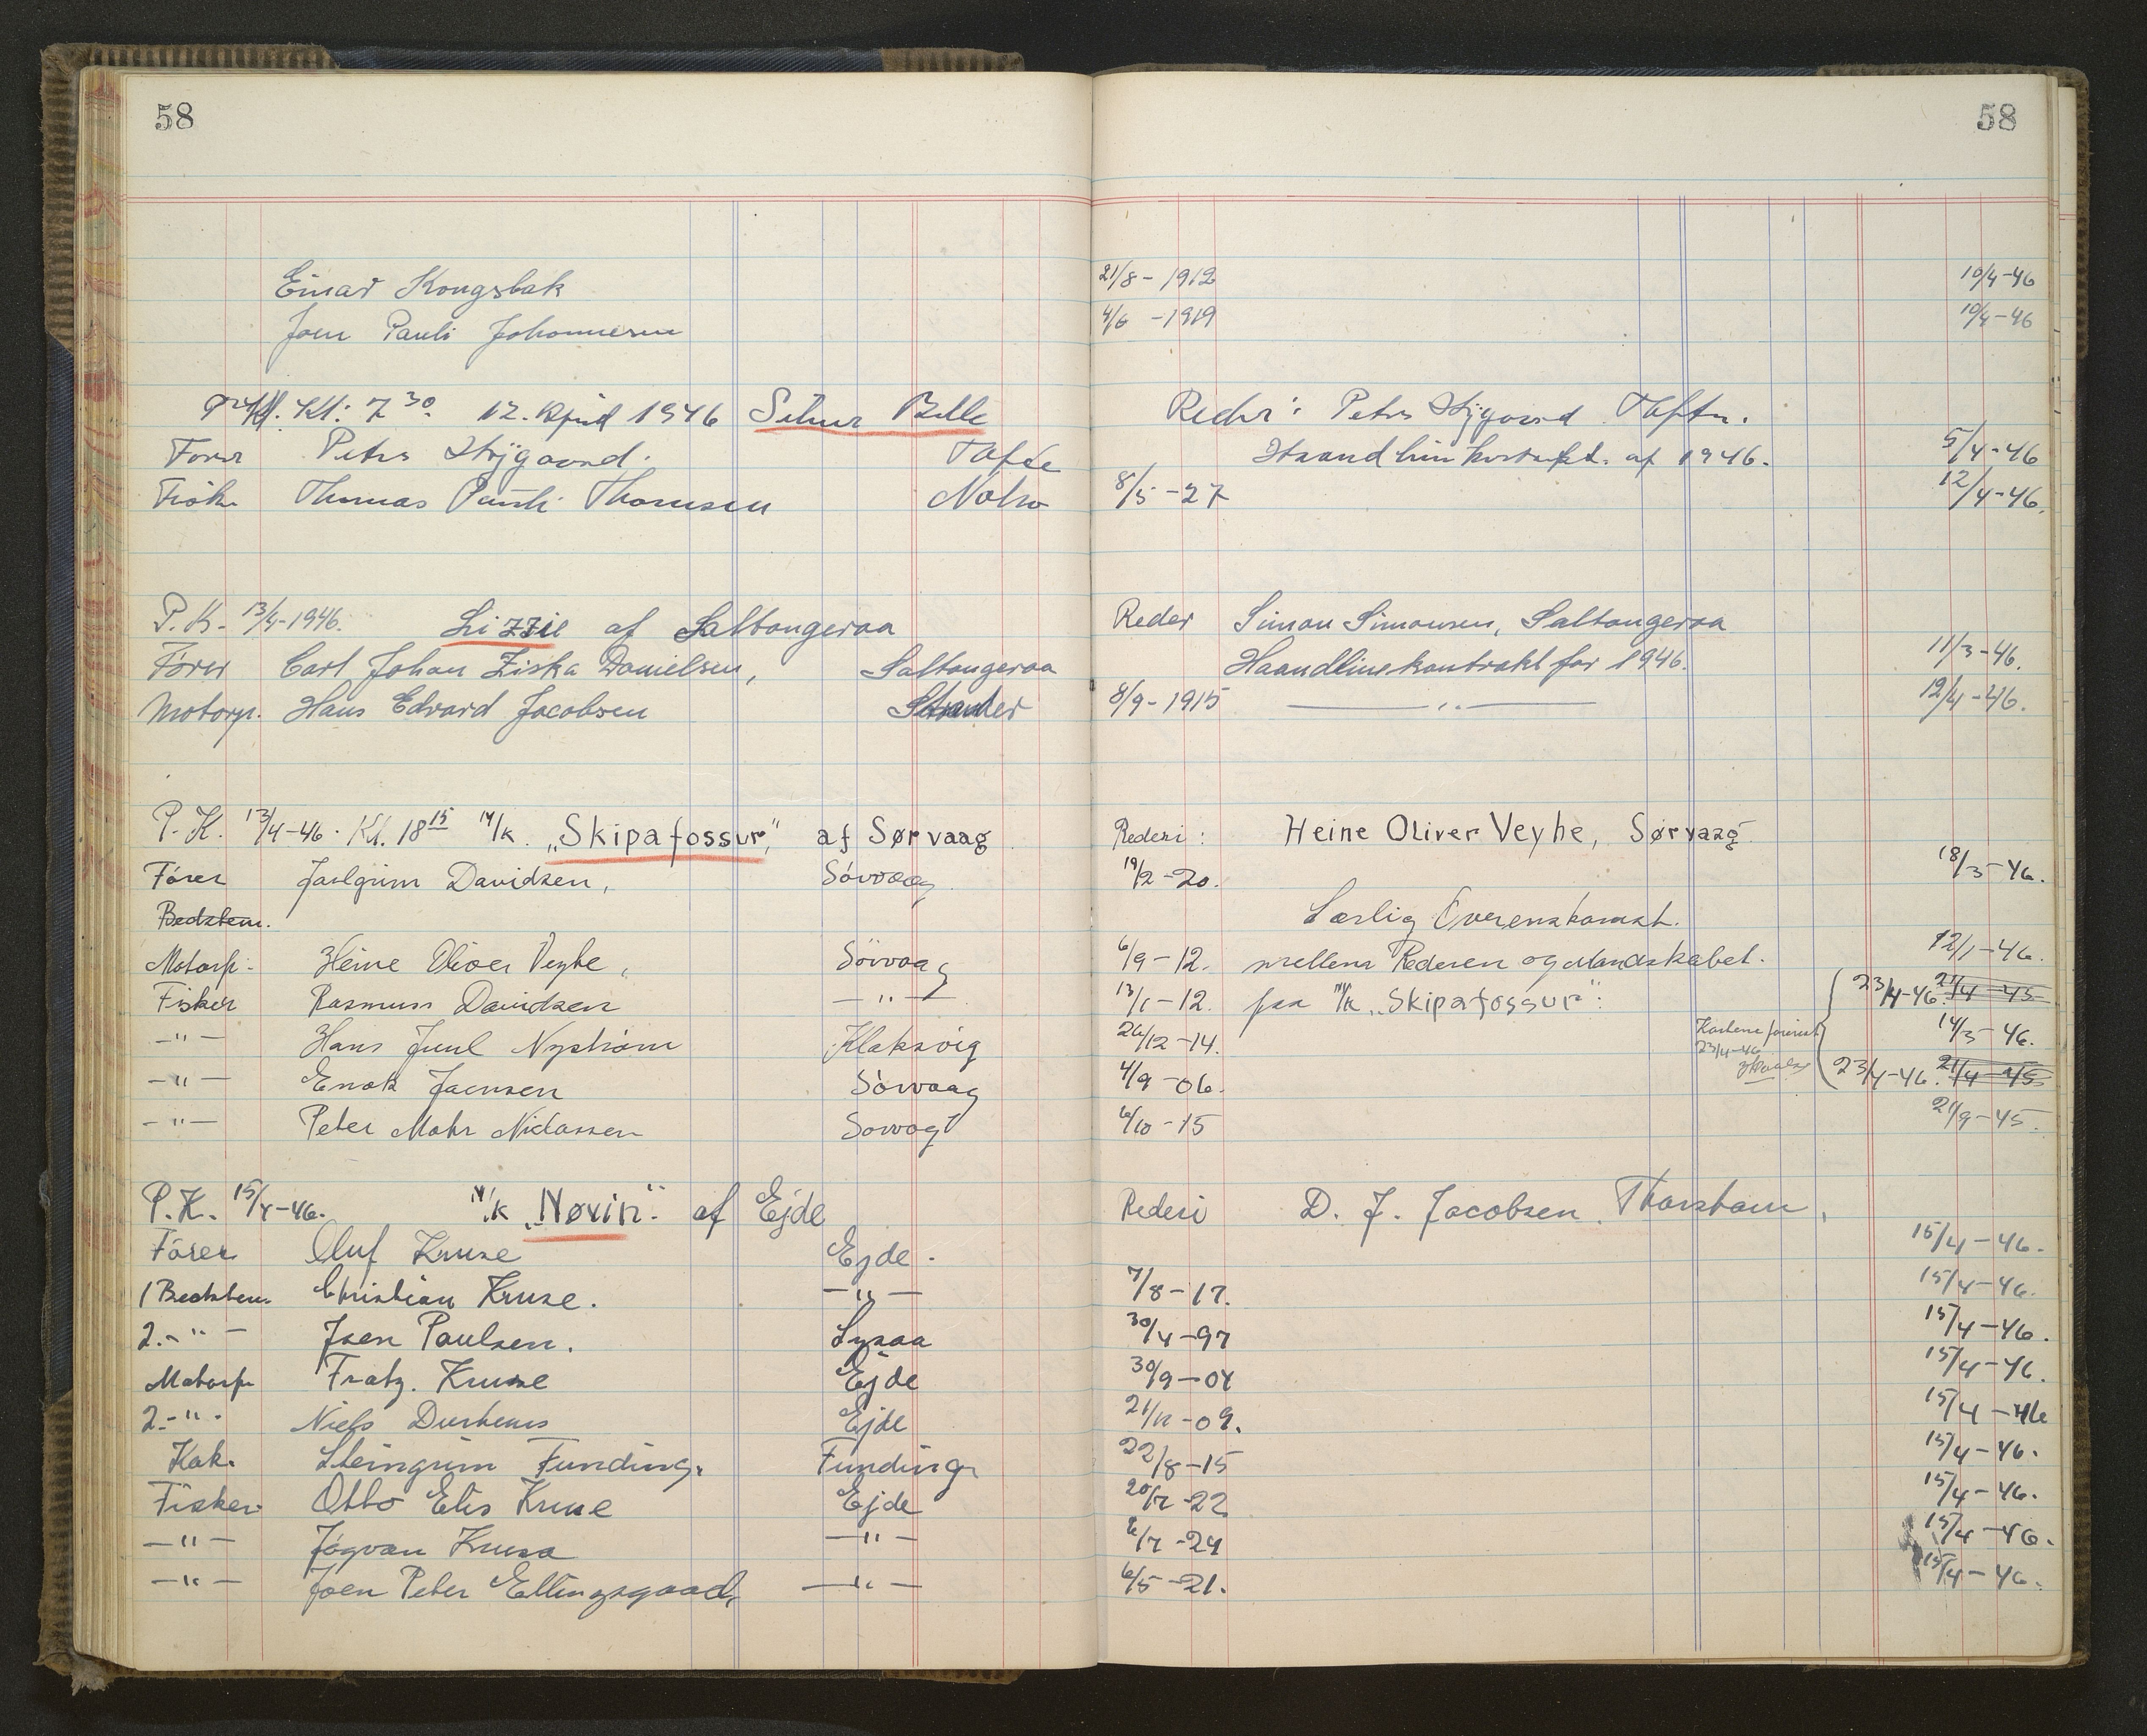 58 58
Einar Kongsbak 21/8 - 1912 10/4-46
Joen Pauli Johannesen 4/6 - 1919 10/4-46
Kl: 7 30. 12. April 1946 Reder: Petur
Fører Petur Højgaard. Tofte Haandlinkontrakt. af 1946. 5/4-46
Fisk. Thomas Pauli Thomsen Nolsø 8/5-27 12/4-46.
P.K. 13/4-1946. Lizzie af Saltangeraa Reder Simon Simonsen, Saltangeraa
Fører Carl Johan Ziska Danielsen, Saltangeraa Haandlinekontrakt for 1946. 11/3-46.
Motorp. Hans Edvard Jacobsen Strander 8/9-1915 — " — 12/4-46.
P.K. 13/4-46. Kl. 18 15 M/k. „Skipafossur," af Sørvaag Rederi: Heine Oliver Veyhe, Sørvaag
Fører Jaslgrim Davidsen, Sóvvaag 19/2-20. 18/3-46.
Bedstem. Særlig Overenskomst.
Motorp- Heine Oliver Veyhe, Sövvaag 6/9-12. mellem Rederen og Mandskabet. 12/1-46.
Fisker Rasmuss Davidsen — " — 13/1-12. paa M/k „Skipafossur": 23/4-46. 21/4-45
— " — Hans Juul Nystrøm Klaksvig 26/12-14. 23/4-46 14/3-46.
— " — Enok Joensen Sòvvaag 4/9-06. 23/4-46. 21/4-45
— " — Peter Mohr Niclassen Sovvag 6/10-15 21/9-45.
P.K. 15/4-46. M/k „Nøvin". af Ejde Rederi D. J. Jacobsen. Thorshavn,
Fører Oluf Kruse Ejde. 15/4-46.
1 Bedstem. Christian Kruse. — " — 7/8-17. 15/4-46.
2. - " - Joen Paulsen. Lysaa 30/4-97 15/4-46.
Motorp Fratz. Kruse Ejde 30/9-04 15/4-46.
2. - " - Niels Durhuus Ejde 21/12-09. 15/4-46
Kok. Steingrim Funding. Funding 22/8-15 15/4-46.
Fisker Otto Elis Kruse Ejde 20/12-22 15/4-46.
— " — Jógvan Kruse — " — 6/7-24 15/4-46.
— " — Joen Peter Ellingsgaard, — " — 6/5-21. 15/4-46.